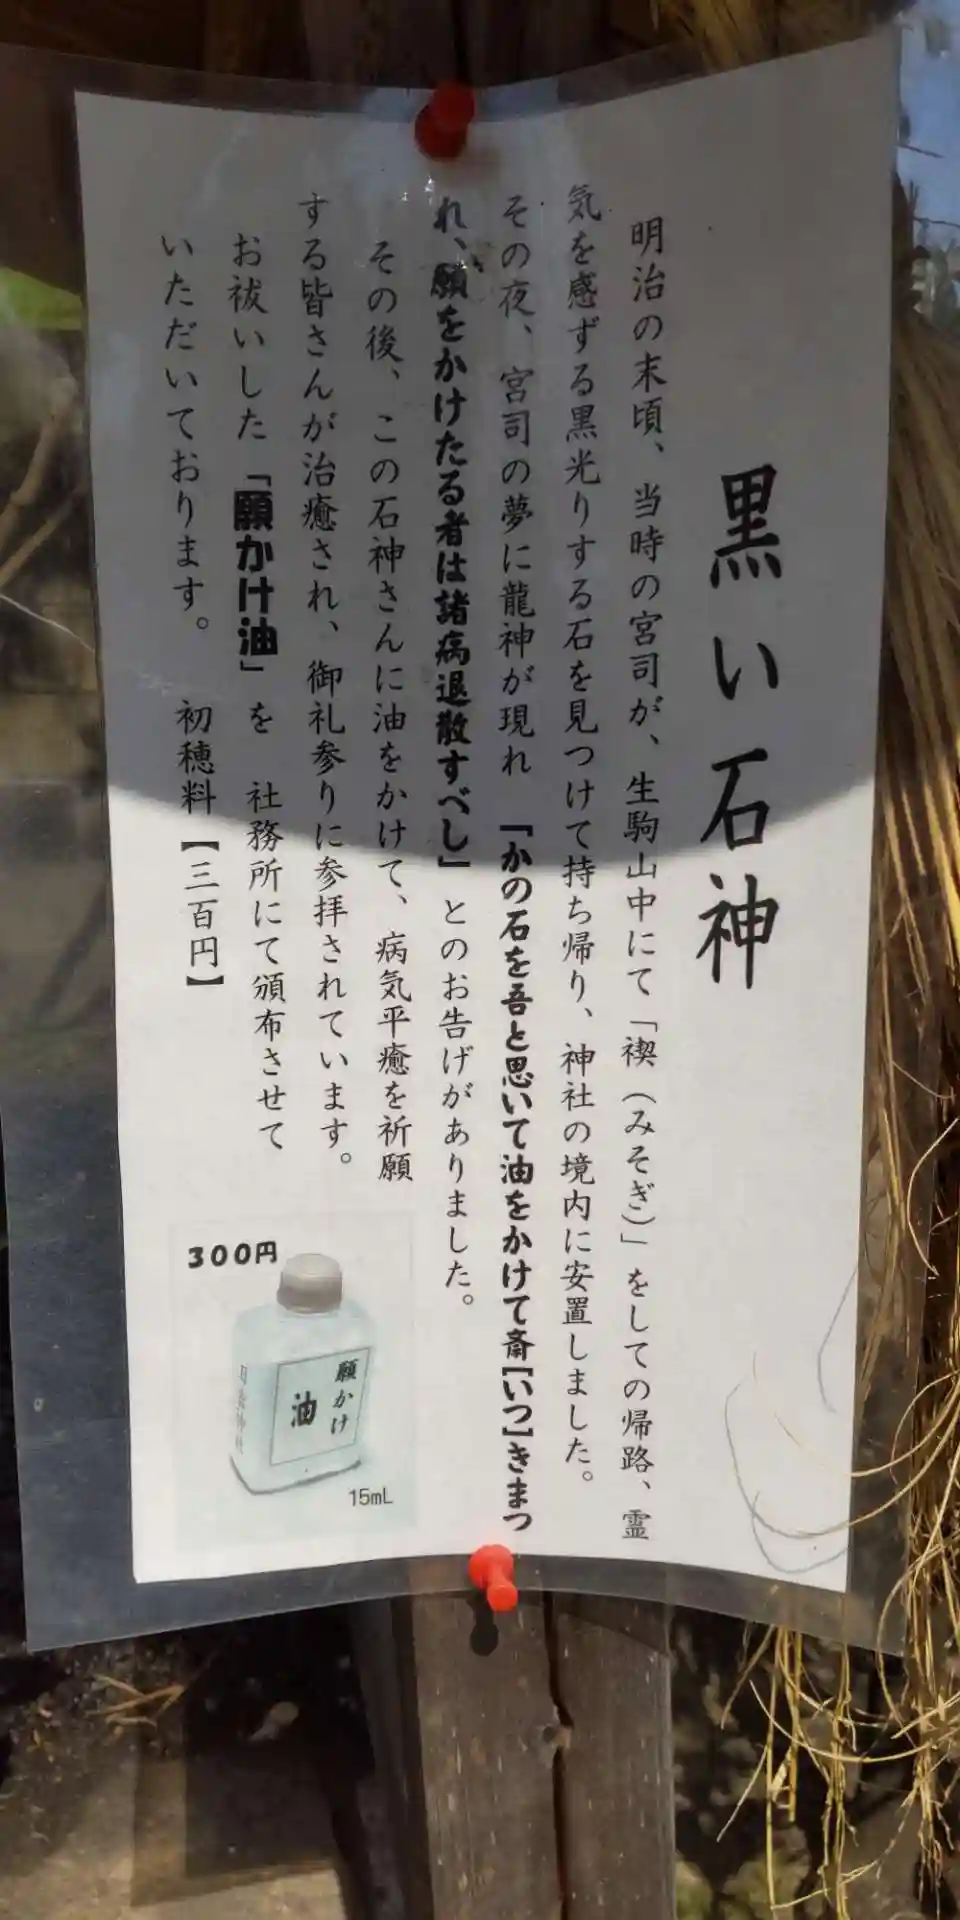 黒い石神
明治の末頃、当時の宮司が、生駒山中にて「禊(みそぎ)」をしての帰路、霊
気を感ずる黒光りする石を見つけて持ち帰り、神社の境内に安置しました。
その夜、宮司の夢に龍神が現れ「かの石を吾と思いて油をかけて斎【いつ】きまつ
れ、願をかけたる者は諸病退散すべし」とのお告げがありました。
その後、この石神さんに油をかけて、病気平癒を祈願
する皆さんが治癒され、御礼参りに参拝されています。
お祓いした「願かけ油」を 社務所にて頒布させて
いただいております。 初穂料【三百円】
300円
願かけ
油
15mL